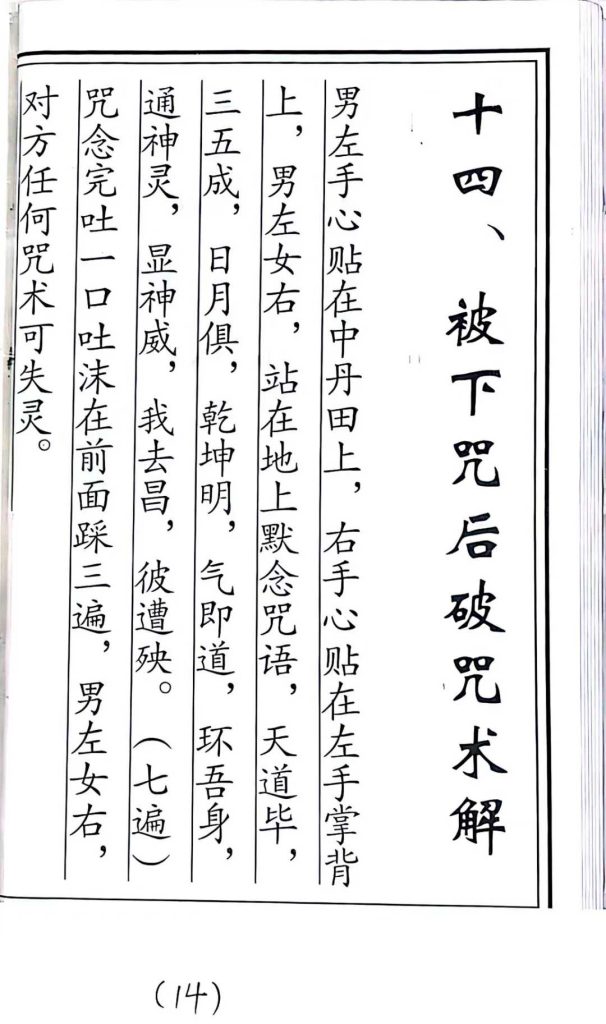 十四、被下咒后破咒术解
男左手心贴在中丹田上，右手心贴在左手掌背
上，男左女右，站在地上默念咒语，天道毕，
三五成，日月俱，乾坤明，气即道，环吾身，
通神灵，显神威，我去昌，彼遭殃。（七遍）
咒念完吐一口吐沫在前面踩三遍，男左女右，
对方任何咒术可失灵。
(14)